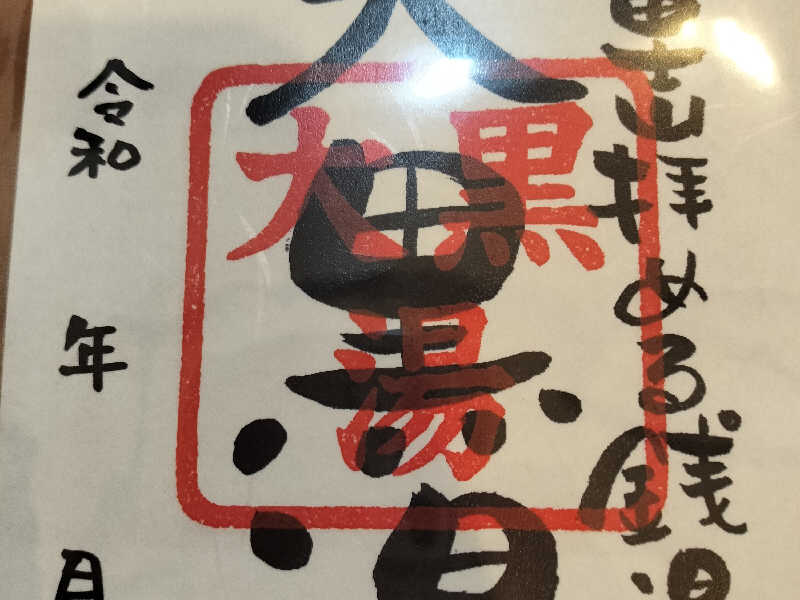 富士山拝める銭湯
大黒湯
大黒
湯
令和 年 月